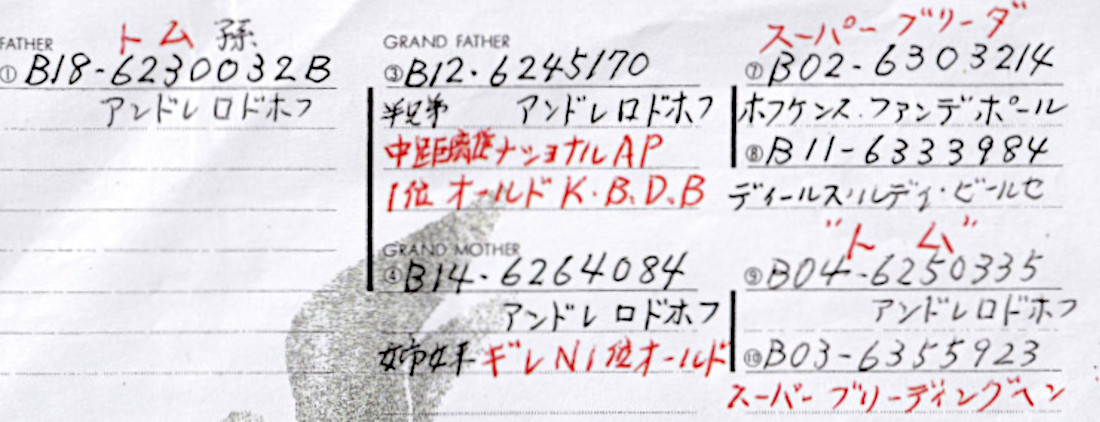 FATHER
トム 孫
① B18-6230032B
アンドレ ロドホフ
GRAND FATHER
③ B12・6245170
半兄弟 アンドレ ロドホフ
中距離ナショナル AP
1位 オールド K.B.D.B
GRAND MOTHER
④ B14-6264084
アンドレ ロドホフ
姉妹 ギレ N1位オールド
スーパー ブリーダ
⑦ B02-6303214
ホフケンス.ファンデポール
⑧ B11-6333984
ディールス.ルディ・ビールセ
"トム"
⑨ B04-6250335
アンドレ ロドホフ
⑩ B03-6355923
スーパー ブリーディングヘン